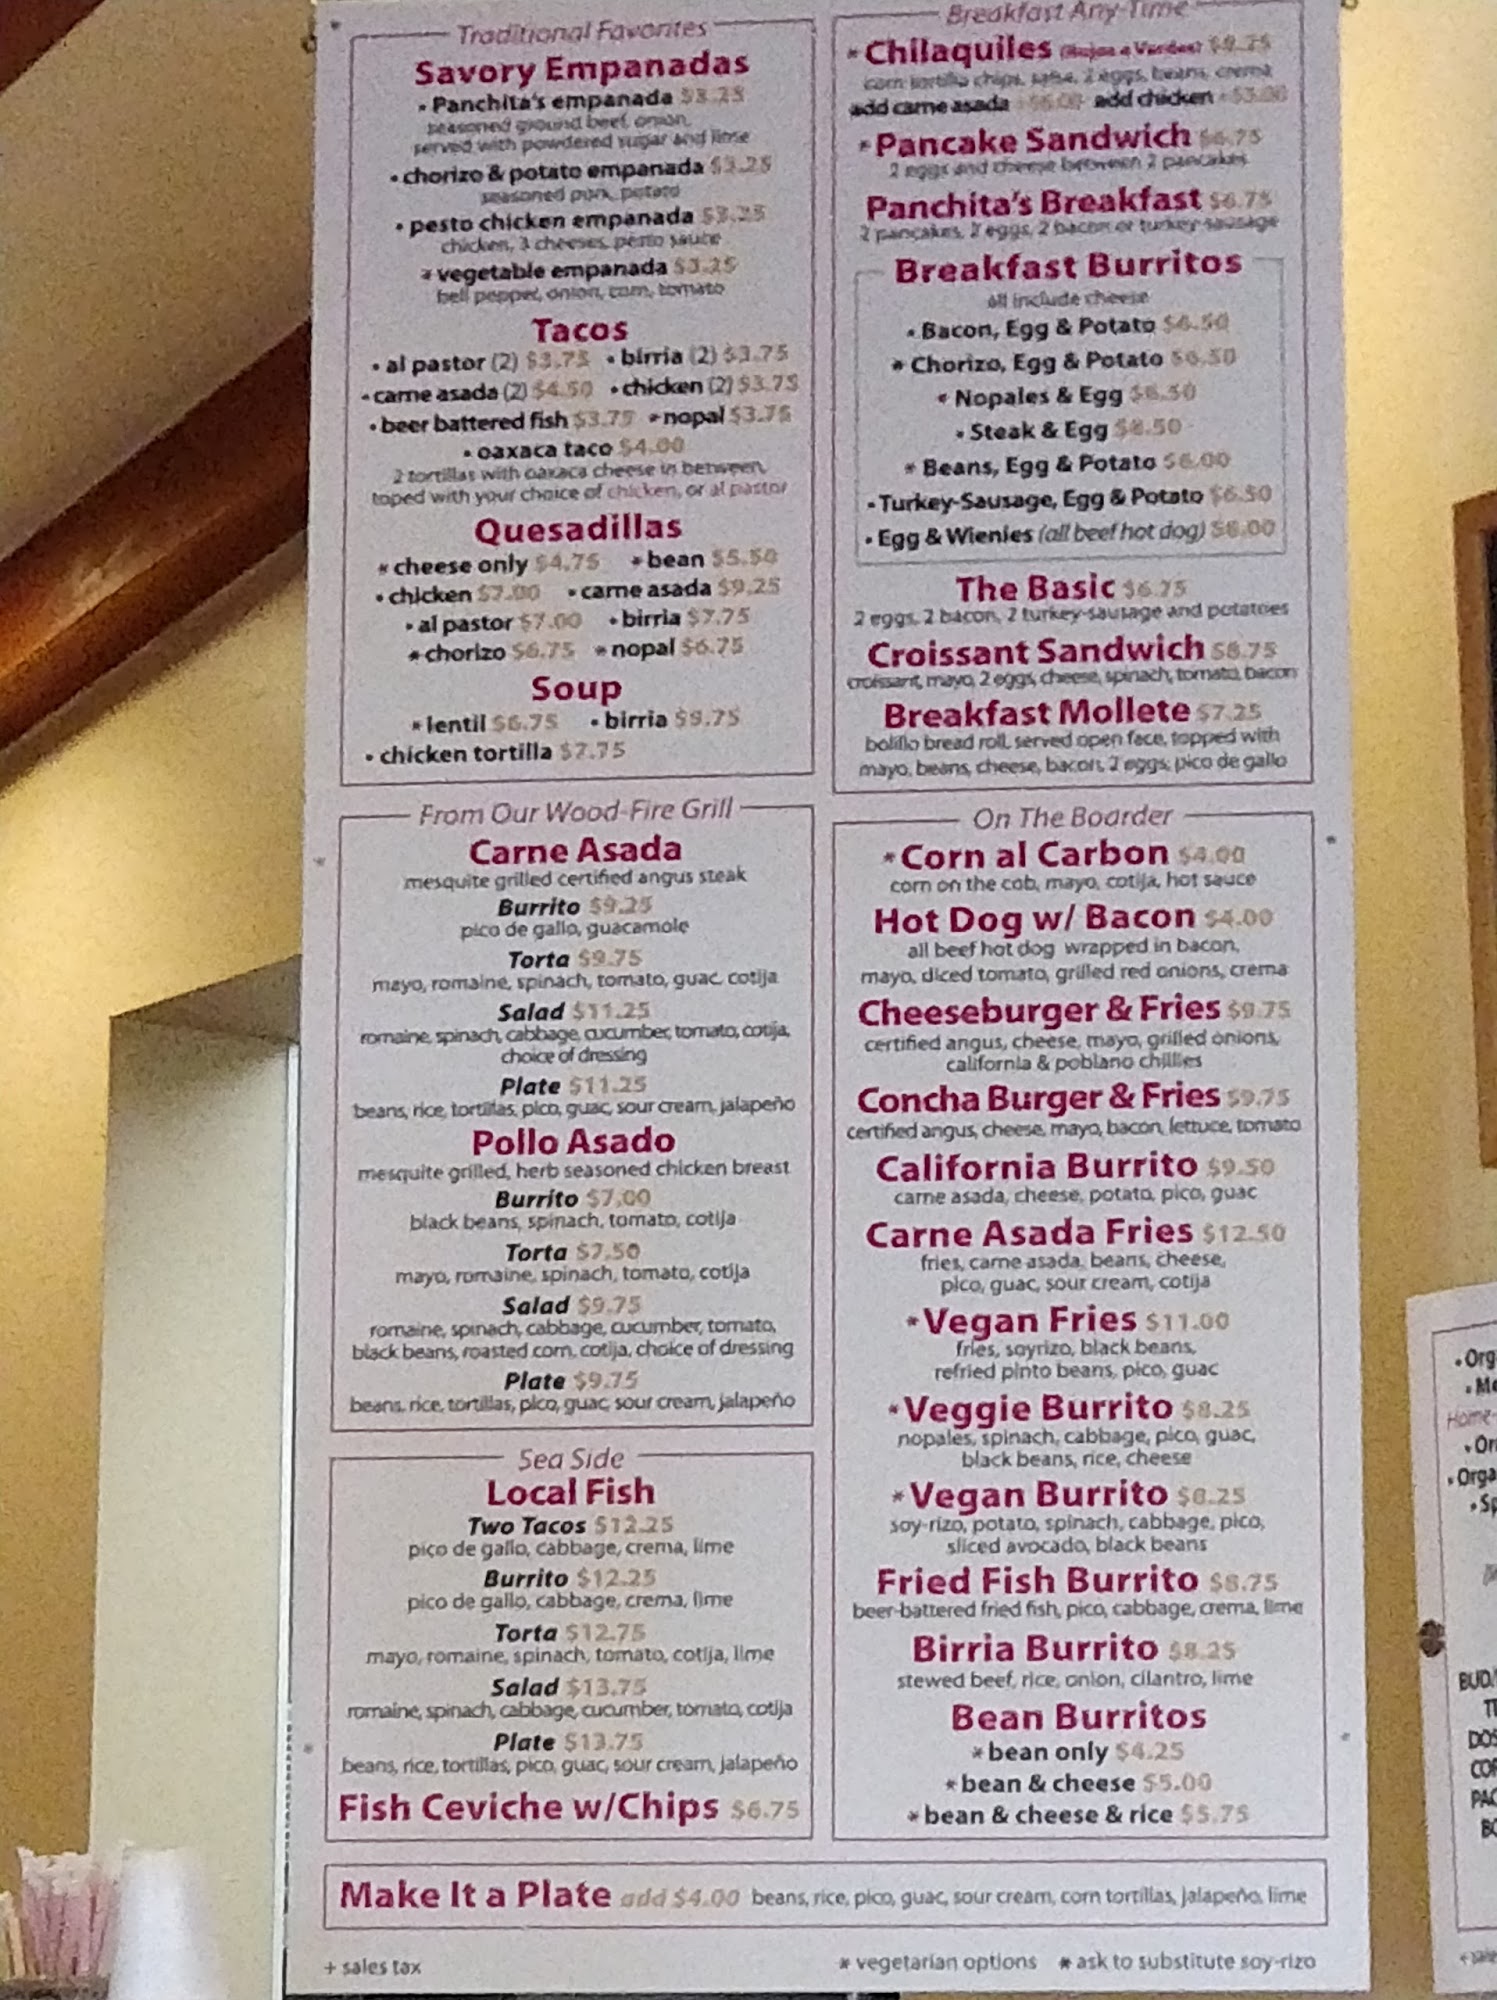 Traditional Favorites
Savory Empanadas
• Panchita's empanada $3.25
seasoned ground beef, onion,
served with powdered sugar and lime
• chorizo & potato empanada $3.25
seasoned pork, potato
• pesto chicken empanada $3.25
chicken, 3 cheeses, pesto sauce
* vegetable empanada $3.25
bell pepper, onion, corn, tomato
Tacos
• al pastor (2) $3.75 • birria (2) $3.75
• carne asada (2) $4.50 • chicken (2) $3.75
• beer battered fish $3.75 * nopal $3.75
• oaxaca taco $4.00
2 tortillas with oaxaca cheese in between,
toped with your choice of chicken, or al pastor
Quesadillas
* cheese only $4.75 * bean $5.50
• chicken $7.00 • carne asada $9.25
• al pastor $7.00 • birria $7.75
* chorizo $6.75 * nopal $6.75
Soup
* lentil $6.75 • birria $9.75
• chicken tortilla $7.75
From Our Wood-Fire Grill
Carne Asada
mesquite grilled certified angus steak
Burrito $9.25
pico de gallo, guacamole
Torta $9.75
mayo, romaine, spinach, tomato, guac, cotija
Salad $11.25
romaine, spinach, cabbage, cucumber, tomato, cotija,
choice of dressing
Plate $11.25
beans, rice, tortillas, pico, guac, sour cream, jalapeño
Pollo Asado
mesquite grilled, herb seasoned chicken breast
Burrito $7.00
black beans, spinach, tomato, cotija
Torta $7.50
mayo, romaine, spinach, tomato, cotija
Salad $9.75
romaine, spinach, cabbage, cucumber, tomato,
black beans, roasted corn, cotija, choice of dressing
Plate $9.75
beans, rice, tortillas, pico, guac, sour cream, jalapeño
Sea Side
Local Fish
Two Tacos $12.25
pico de gallo, cabbage, crema, lime
Burrito $12.25
pico de gallo, cabbage, crema, lime
Torta $12.75
mayo, romaine, spinach, tomato, cotija, lime
Salad $13.75
romaine, spinach, cabbage, cucumber, tomato, cotija
Plate $13.75
beans, rice, tortillas, pico, guac, sour cream, jalapeño
Fish Ceviche w/Chips $6.75
Breakfast Any-Time
* Chilaquiles (Rojos o Verdes) $9.25
corn tortilla chips, salsa, 2 eggs, beans, crema
add carne asada add chicken
* Pancake Sandwich $6.75
2 eggs and cheese between 2 pancakes
Panchita's Breakfast $6.75
2 pancakes, 2 eggs, 2 bacon or turkey-sausage
Breakfast Burritos
all include cheese
• Bacon, Egg & Potato $6.50
* Chorizo, Egg & Potato $6.50
* Nopales & Egg $6.50
• Steak & Egg $8.50
* Beans, Egg & Potato $6.00
• Turkey-Sausage, Egg & Potato $6.50
• Egg & Wienies (all beef hot dog) $6.00
The Basic $6.75
2 eggs, 2 bacon, 2 turkey-sausage and potatoes
Croissant Sandwich $8.75
croissant, mayo, 2 eggs, cheese, spinach, tomato, bacon
Breakfast Mollete $7.25
bolillo bread roll, served open face, topped with
mayo, beans, cheese, bacon, 2 eggs, pico de gallo
On The Boarder
* Corn al Carbon $4.00
corn on the cob, mayo, cotija, hot sauce
Hot Dog w/ Bacon $4.00
all beef hot dog wrapped in bacon,
mayo, diced tomato, grilled red onions, crema
Cheeseburger & Fries $9.75
certified angus, cheese, mayo, grilled onions,
california & poblano chillies
Concha Burger & Fries $9.75
certified angus, cheese, mayo, bacon, lettuce, tomato
California Burrito $9.50
carne asada, cheese, potato, pico, guac
Carne Asada Fries $12.50
fries, carne asada, beans, cheese,
pico, guac, sour cream, cotija
* Vegan Fries $11.00
fries, soyrizo, black beans,
refried pinto beans, pico, guac
* Veggie Burrito $8.25
nopales, spinach, cabbage, pico, guac,
black beans, rice, cheese
* Vegan Burrito $8.25
soy-rizo, potato, spinach, cabbage, pico,
sliced avocado, black beans
Fried Fish Burrito $8.75
beer-battered fried fish, pico, cabbage, crema, lime
Birria Burrito $8.25
stewed beef, rice, onion, cilantro, lime
Bean Burritos
* bean only $4.25
* bean & cheese $5.00
* bean & cheese & rice $5.75
Make It a Plate add $4.00 beans, rice, pico, guac, sour cream, corn tortillas, jalapeño, lime
+ sales tax
* vegetarian options * ask to substitute soy-rizo
• Org
Home-
• Orga
BUD
DOS